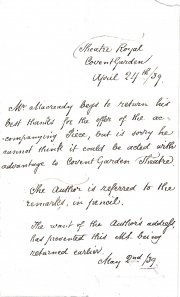 Theatre Royal
Covent Garden
April 24th/39.
Mr Macready begs to return his
best thanks for the offer of the ac-
companying Piece, but is sorry he
cannot think it could be acted with
advantage to Covent Garden Theatre
The Author is referred to the
remarks, in pencil.
The want of the Author's address,
has prevented this MS. being
returned earlier
May 2nd/39.